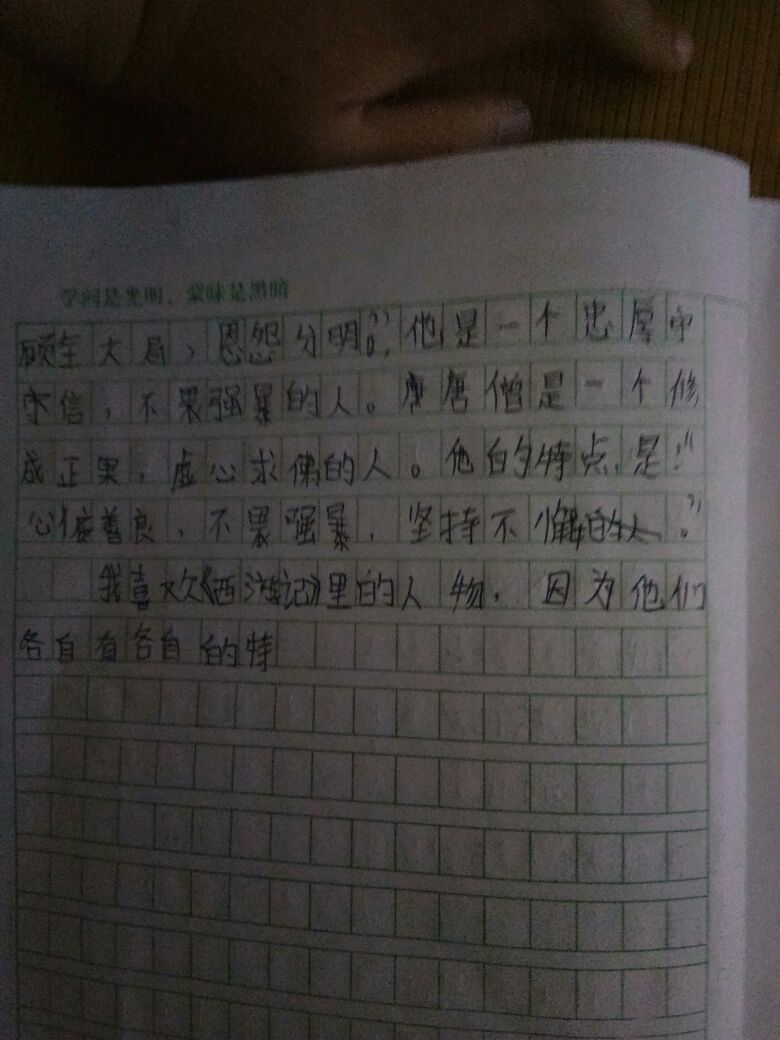 学问是光明，蒙昧是黑暗
顾全大局，恩怨分明”。他是一个忠厚
守信，不畏强暴的人。唐僧是一个修
成正果，虚心求佛的人。他的特点是：“
心慈善良，不畏强暴，坚持不懈的人。”
我喜欢《西游记》里的人物，因为他们
各自有各自的特